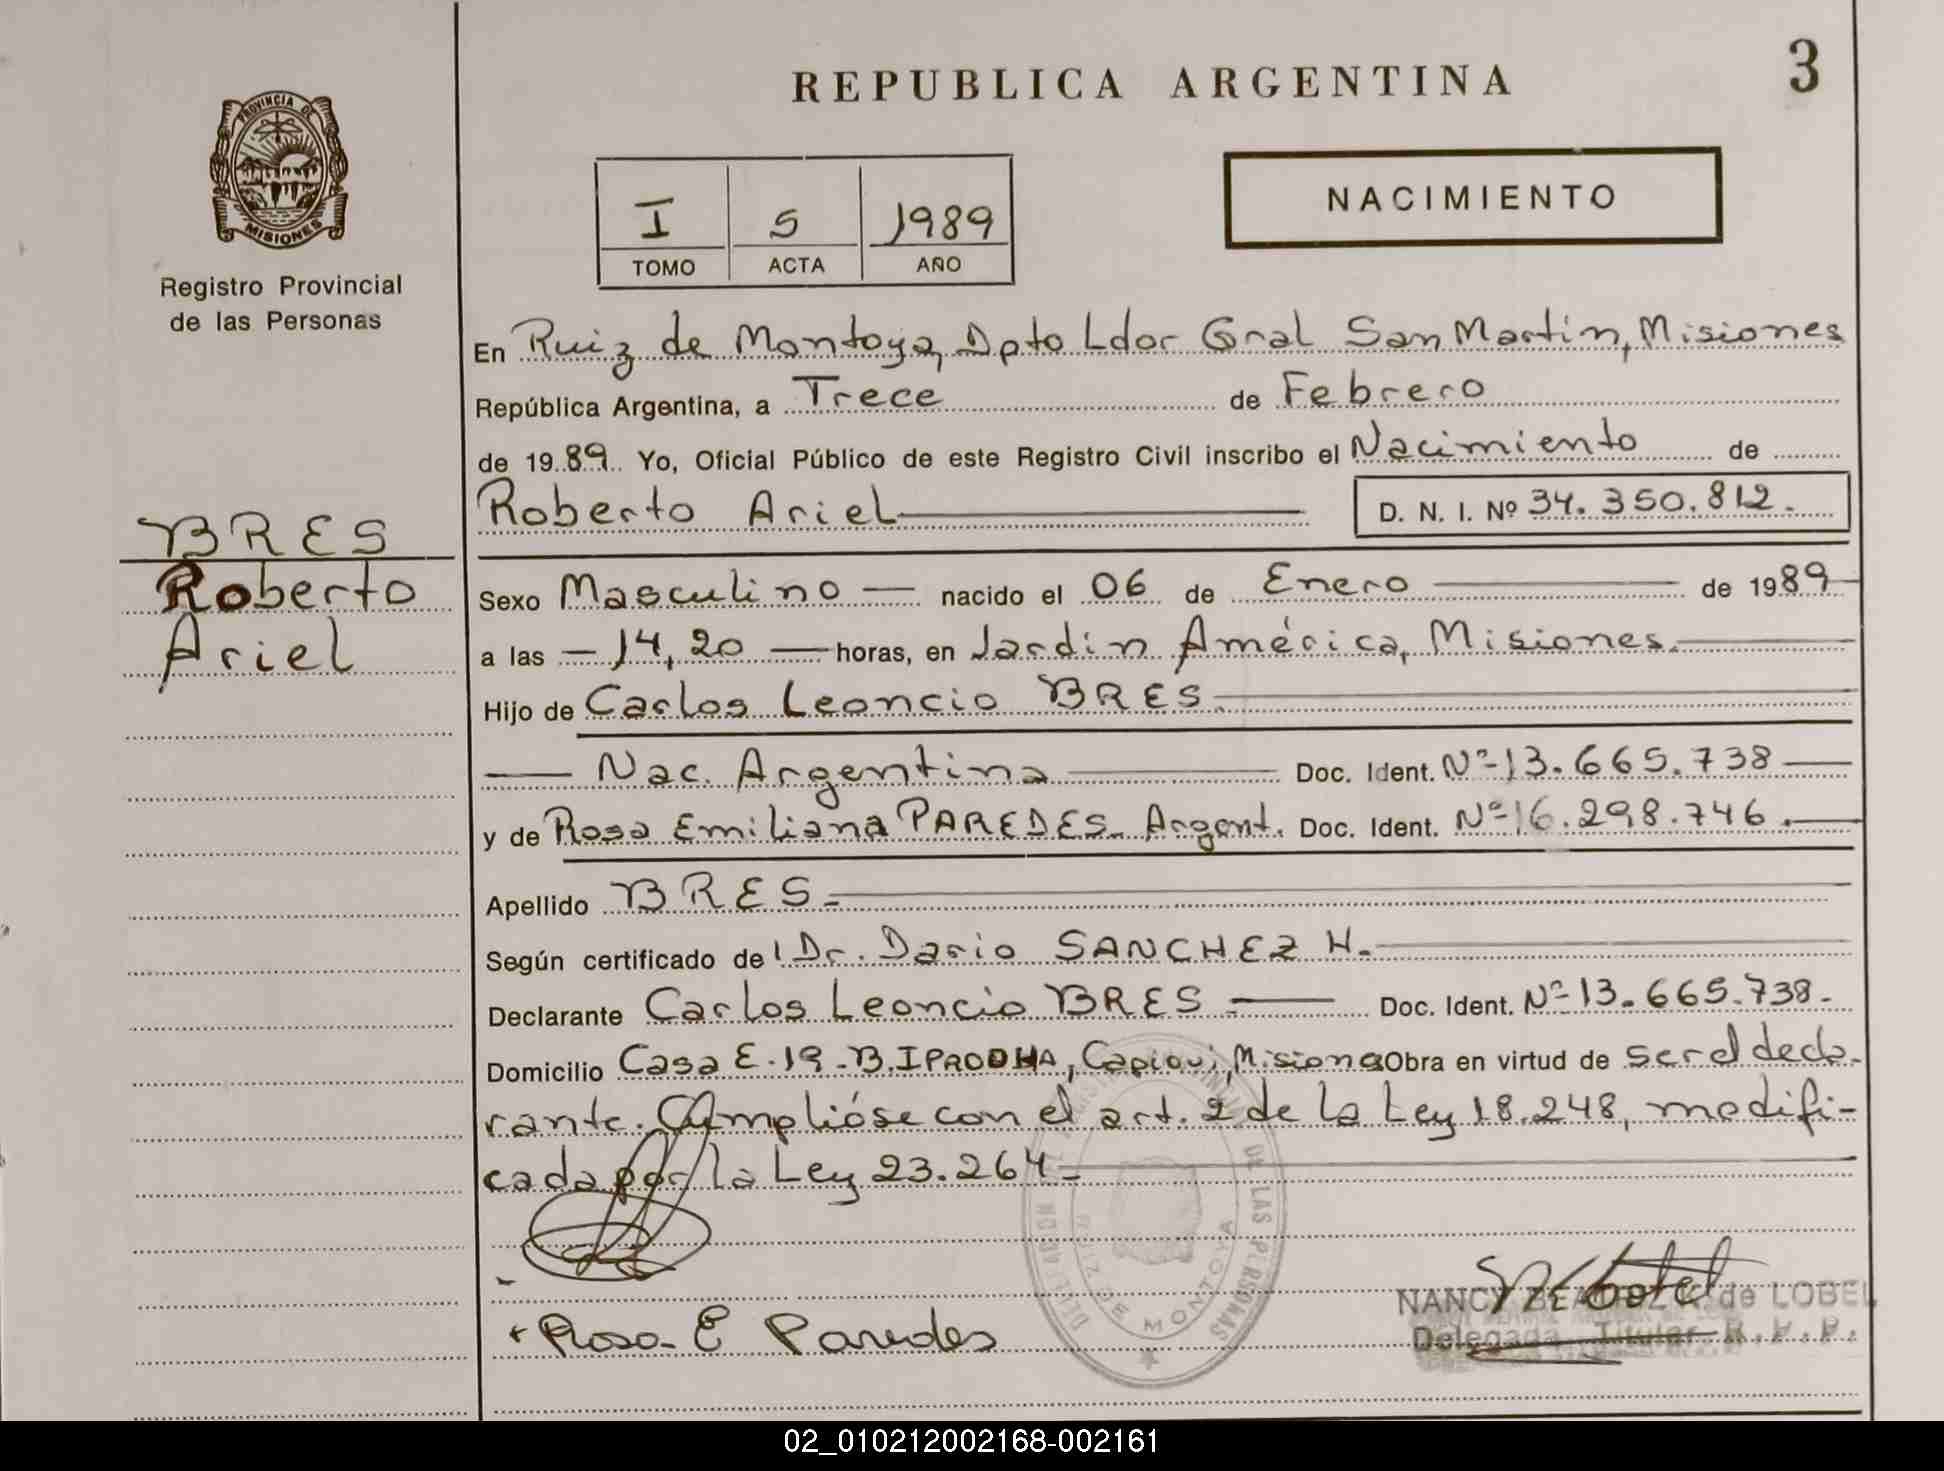 3
REPUBLICA ARGENTINA
PROVINCIA DE
MISIONES
Registro Provincial
de las Personas
NACIMIENTO
I 5 1989
TOMO ACTA AÑO
En Ruiz de Montoya, Dpto Ldor Gral San Martin, Misiones
República Argentina, a Trece de Febrero
de 1989 Yo, Oficial Público de este Registro Civil inscribo el Nacimiento de
Roberto Ariel D. N. I. Nº 34.350.812.
BRES
Roberto
Ariel
Sexo Masculino — nacido el 06 de Enero de 1989
a las — 14,20 — horas, en Jardin América, Misiones.
Hijo de Carlos Leoncio BRES.
— Nac. Argentina — Doc. Ident. Nº 13.665.738 —
y de Rosa Emiliana PAREDES. Argent. Doc. Ident. Nº 16.298.746.
Apellido BRES.
Según certificado de Dr. Dario SANCHEZ H.
Declarante Carlos Leoncio BRES — Doc. Ident. Nº 13.665.738.
Domicilio Casa E.19-B.IPRODHA, Capiovi, Misiones Obra en virtud de ser el decla-
rante. Amplióse con el art. 2 de la Ley 18.248, modifi-
cada por la Ley 23.264
DE LAS PERSONAS
RUIZ DE MONTOYA
Rosa E Paredes
NANCY de LOBEL
Delegada Titular R.P.P.
02_010212002168-002161